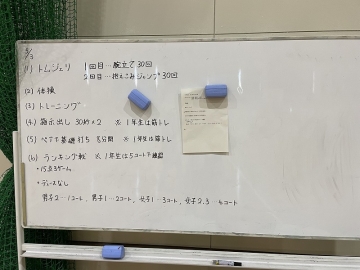 3/3
(1) トムジェリ 1回目…腕立て30回
2回目…抱えこみジャンプ30回
(2) 体操
(3) トレーニング
(4) 指示出し 30秒×2 ※1年生は筋トレ
(5) ペアで基礎打ち 8分間 ※1年生は筋トレ
(6) ランキング戦 ※1年生は5コートで練習
・15点3ゲーム
・デュースなし
男子2…1コート, 男子1…2コート, 女子1…3コート, 女子2.3…4コート